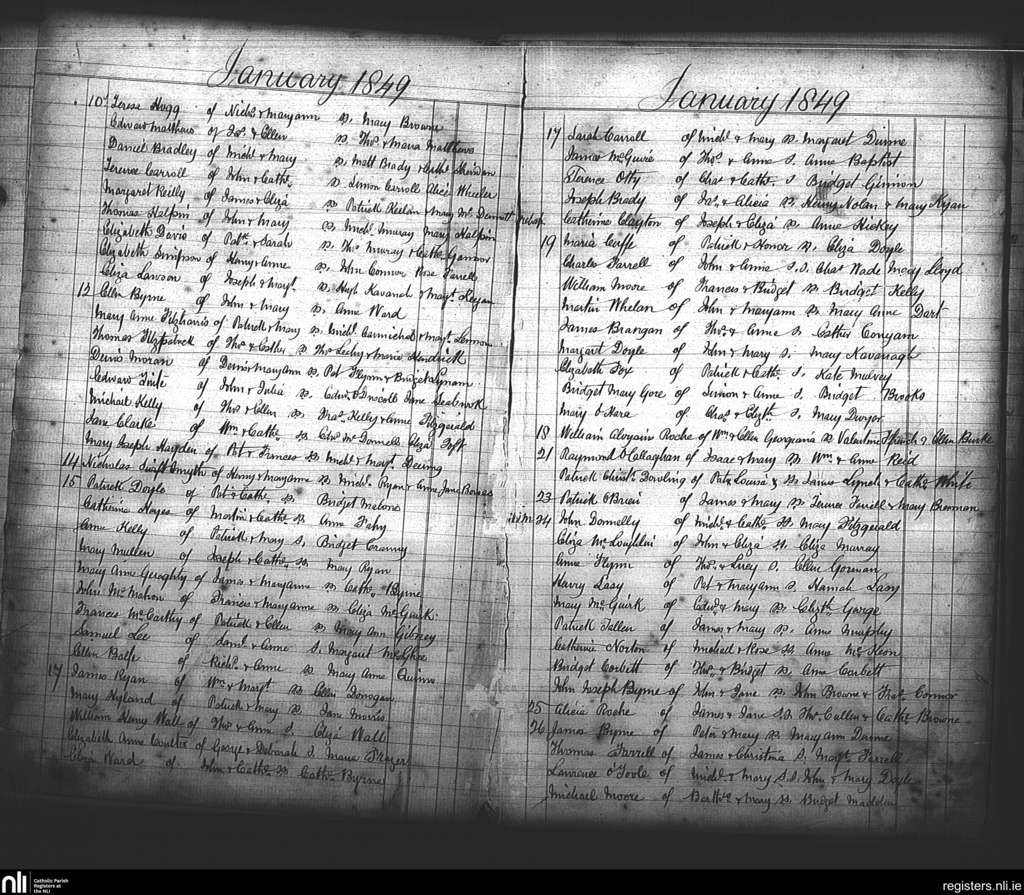 January 1849
10 Teresa Hogg of Nichs & Maryann Ss. Mary Browne
Edward Matthews of Jas. & Ellen Ss Thos & Maria Matthews
Daniel Bradley of Michl & Mary Ss. Matt Brady & Cathe Sheridan
Terence Carroll of John & Cathe. Ss Simon Carroll Alice Wheeler
Margaret Reilly of James & Eliza Ss Patrick Keelan & Mary Mc Dermott
Thomas Halpin of John & Mary Ss. Michl. Murray Mary Halpin
Elizabeth Davis of Patk & Sarah Ss Thos Murray & Cathe Gannon
Elizabeth Simpson of Henry & Anne Ss. John Connor Rose Farrell
Eliza Lawson of Joseph & Margt. Ss. Hugh Kavanah & Margt. Keegan
12 Ellen Byrne of John & Mary Ss. Anne Ward
Mary Anne Fitzharris of Patrick & Mary Ss. Michl. Carmichael & Margt. Lennon
Thomas Fitzpatrick of Thos & Esther Ss Thos Lesley & Maria Kendrick
Denis Moran of Denis & Maryann Ss. Pat Flynn & Bridget
Edward Tute of John & Julia Ss. Edwd. O Driscoll Jane
Michael Kelly of Thos & Ellen Ss. Thos. Kelly & Anne Fitzgerald
Jane Clarke of Wm & Cathe. Ss Edwd. Mc Donnell Eliza Toft
Mary Joseph Hayden of Pat & Frances Ss Michl & Margt. Deering
14 Nicholas Swift Smyth of Henry & Maryanne Ss Michl. Ryan & Anne Jane
15 Patrick Doyle of Pat & Cathe Ss. Bridget Malone
Catherine Hayes of Martin & Cathe Ss Anne Fahy
Anne Kelly of Patrick & Mary S. Bridget Cranny
Mary Mullen of Joseph & Cathe. Ss. Mary Ryan
Mary Anne Geraghty of James & Maryanne Ss Cathe Byrne
John Mc Mahon of Francis & Maryanne Ss Eliza Mc Guirk
Francis Mc Carthy of Patrick & Ellen Ss Mary Ann Gibney
Samuel Lee of Saml. & Anne S. Margaret
Ellen Balfe of Richd. & Anne Ss Mary Anne Quinn
17 James Ryan of Wm & Margt Ss Ellen Donegan
Mary Hyland of Patrick & Mary Ss Jane Morris
William Henry Wall of Thos & Anne S. Eliza Wall
Elizabeth Anne Coulter of George & Deborah S. Maria Frazer
Eliza Ward of John & Cathe Ss Cathe Byrne
January 1849
17 Sarah Carroll of Michl & Mary Ss. Margaret Dunne
James McGuire of Thos & Anne S. Anne Baptist
Terence Otty of Chas & Cathe. S Bridget Ginnion
Joseph Brady of Jas. & Alicia Ss Henry Nolan & Mary Ryan
Catherine Clayton of Joseph & Eliza Ss. Anne Hickey
19 Maria Cuffe of Patrick & Honor Ss. Eliza Doyle
Charles Farrell of John & Anne S.S. Chas Wade Mary Lloyd
William Moore of Francis & Bridget Ss Bridget Kelly
Martin Whelan of John & Maryann Ss Mary Anne Dart
James Brangan of Thos. & Anne Ss Esther Conyam
Margaret Doyle of John & Mary S. Mary Kavanagh
Elizabeth Fox of Patrick & Cathe S. Kate Mulvey
Bridget Mary Gore of Simon & Anne S. Bridget Brooks
Mary O Hara of Chas & Elizth S. Mary Dwyer
18 William Aloysius Roche of Wm & Ellen Georgiana Ss Valentine French & Ellen Burke
21 Raymond O Callaghan of Isaac & Mary Ss Wm & Anne Reid
Patrick Christr. Dowling of Pat & Louisa Ss James Lynch & Cathe White
23 Patrick O Brien of James & Mary Ss Terence Farrell & Mary Brennan
24 John Donnelly of Michl & Cathe Ss Mary Fitzgerald
Eliza Mc Loughlin of John & Eliza Ss. Eliza Murray
Anne Flynn of Thos & Lucy S. Ellen Gorman
Harry Lacy of Pat & Maryann S. Hannah Lacy
Mary Mc Guirk of Edwd & Mary Ss Elizth George
Patrick Fallen of James & Mary Ss. Anne Murphy
Catherine Norton of Michael & Rose Ss Anne Mc Keon
Bridget Corbett of Thos & Bridget Ss. Anne Corbett
John Joseph Byrne of John & Jane Ss John Browne & Connor
25 Alicia Roche of James & Jane S.S Thos. Cullen & Cathe Browne
26 James Byrne of Peter & Mary Ss Mary Ann Dunne
Thomas Farrell of James & Christina S. Margt. Farrell
Lawrence O'Toole of Michl. & Mary S.S. John & Mary Doyle
Michael Moore of Barthw & Mary Ss. Bridget Madden
nli Catholic Parish Registers at the NLI
registers.nli.ie